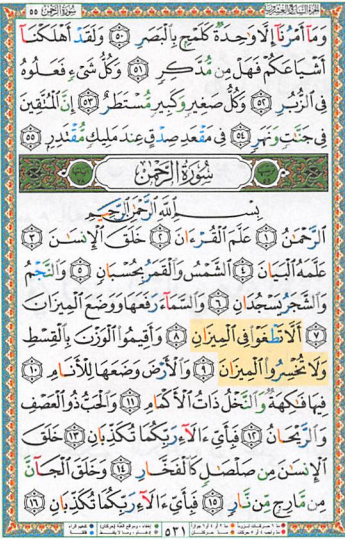 سورة الرحمن ٥٥
وَمَآ أَمْرُنَآ إِلَّا وَٰحِدَةٌ كَلَمْحٍۭ بِٱلْبَصَرِ ٥٠ وَلَقَدْ أَهْلَكْنَآ
أَشْيَاعَكُمْ فَهَلْ مِن مُّدَّكِرٍ ٥١ وَكُلُّ شَىْءٍ فَعَلُوهُ
فِى ٱلزُّبُرِ ٥٢ وَكُلُّ صَغِيرٍ وَكَبِيرٍ مُّسْتَطَرٌ ٥٣ إِنَّ ٱلْمُتَّقِينَ
فِى جَنَّٰتٍ وَنَهَرٍ ٥٤ فِى مَقْعَدِ صِدْقٍ عِندَ مَلِيكٍ مُّقْتَدِرٍۭ ٥٥
سُورَةُ الرَّحْمٰن
بِسْمِ ٱللَّهِ ٱلرَّحْمَٰنِ ٱلرَّحِيمِ
ٱلرَّحْمَٰنُ ١ عَلَّمَ ٱلْقُرْءَانَ ٢ خَلَقَ ٱلْإِنسَٰنَ ٣
عَلَّمَهُ ٱلْبَيَانَ ٤ ٱلشَّمْسُ وَٱلْقَمَرُ بِحُسْبَانٍ ٥ وَٱلنَّجْمُ
وَٱلشَّجَرُ يَسْجُدَانِ ٦ وَٱلسَّمَآءَ رَفَعَهَا وَوَضَعَ ٱلْمِيزَانَ
٧ أَلَّا تَطْغَوْا۟ فِى ٱلْمِيزَانِ ٨ وَأَقِيمُوا۟ ٱلْوَزْنَ بِٱلْقِسْطِ
وَلَا تُخْسِرُوا۟ ٱلْمِيزَانَ ٩ وَٱلْأَرْضَ وَضَعَهَا لِلْأَنَامِ ١٠
فِيهَا فَٰكِهَةٌ وَٱلنَّخْلُ ذَاتُ ٱلْأَكْمَامِ ١١ وَٱلْحَبُّ ذُو ٱلْعَصْفِ
وَٱلرَّيْحَانُ ١٢ فَبِأَىِّ ءَالَآءِ رَبِّكُمَا تُكَذِّبَانِ ١٣ خَلَقَ
ٱلْإِنسَٰنَ مِن صَلْصَٰلٍ كَٱلْفَخَّارِ ١٤ وَخَلَقَ ٱلْجَآنَّ
مِن مَّارِجٍ مِّن نَّارٍ ١٥ فَبِأَىِّ ءَالَآءِ رَبِّكُمَا تُكَذِّبَانِ ١٦
٥٣١